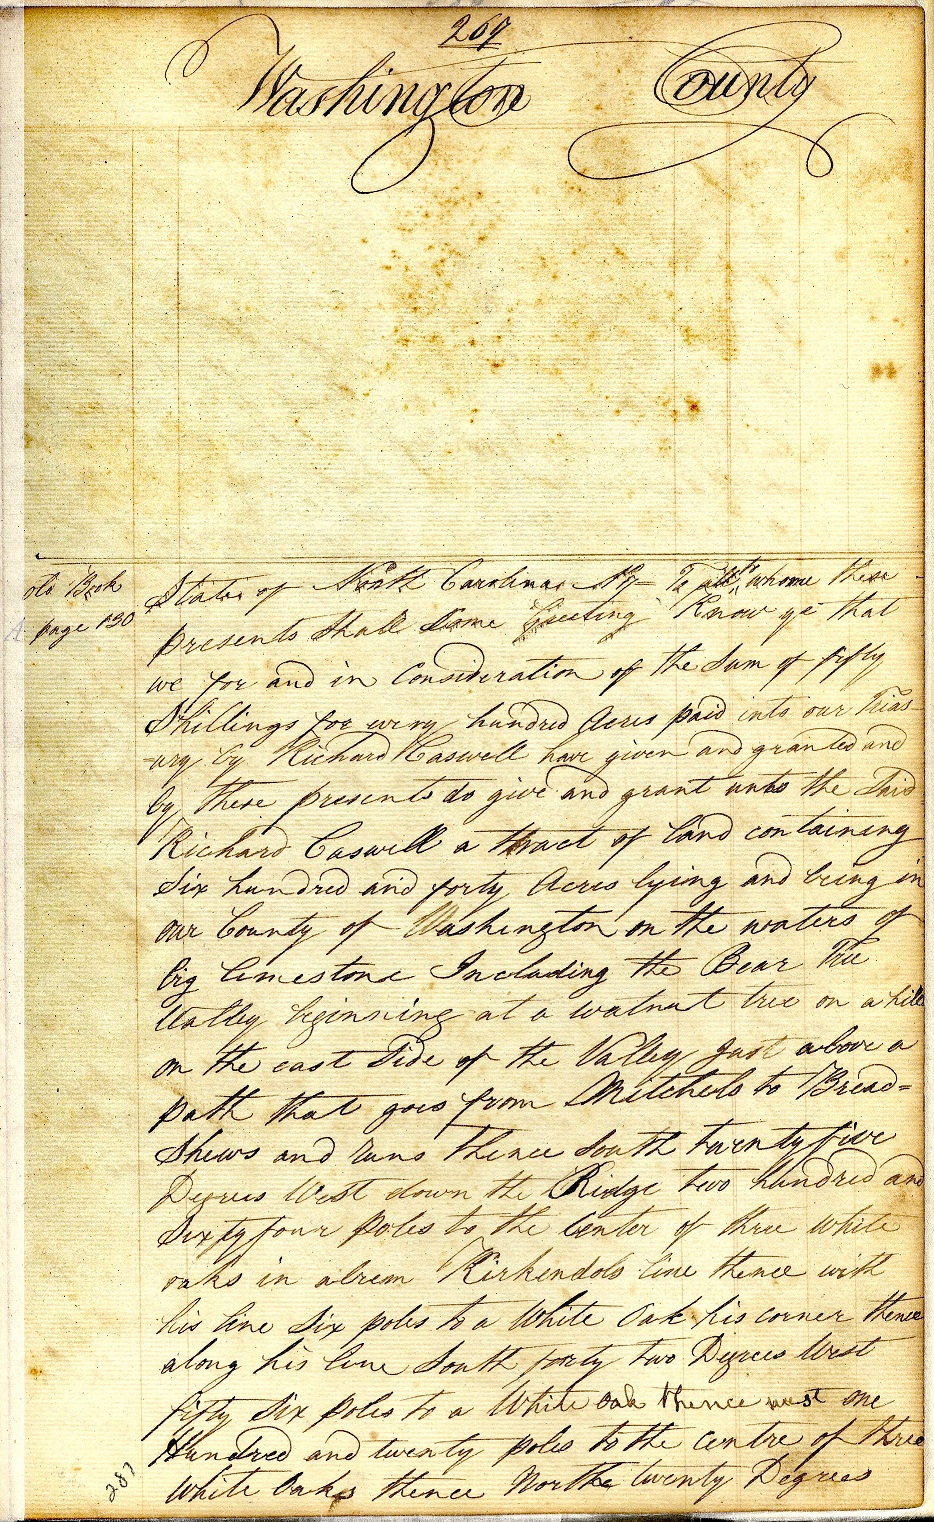 269
Washington County
old Book
page 130
State of North Carolina No To all to whome these
presents shall Come Greeting Know ye that
we for and in Consideration of the Sum of fifty
Shillings for every hundred Acres paid into our Trias
-ury by Richard Caswell have given and granted and
by these presents do give and grant unto the Said
Richard Caswell a tract of land containing
Six hundred and forty Acres lying and being in
our County of Washington on the waters of
big limestone Including the Bear Tree
Valley beginning at a walnut tree on a hill
on the east Side of the Valley Just above a
path that goes from Mitchels to Bread=
Shews and runs thence South twenty five
Degrees West down the Ridge two hundred and
Sixty four poles to the Center of three White
oaks in Kirkendols line thence with
his line Six poles to a White Oak his corner thence
along his line South forty two Degrees West
fifty Six poles to a White oak thence west one
Hundred and twenty poles to the centre of three
White Oaks thence North twenty Degrees
287